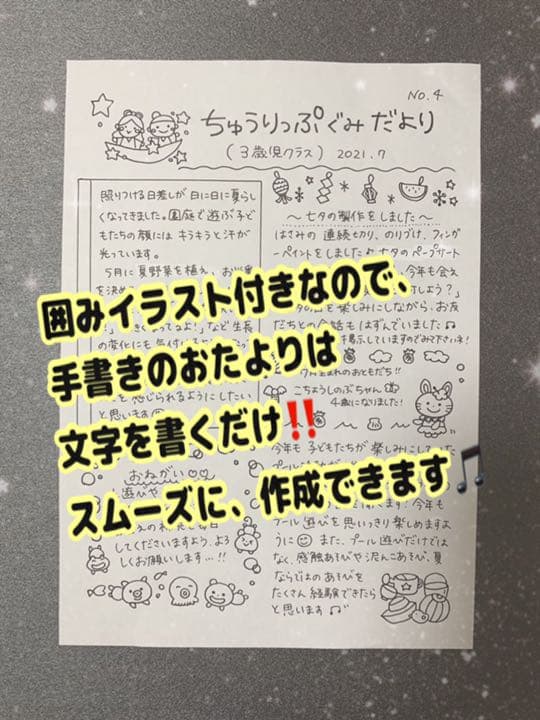 No.4
ちゅうりっぷぐみだより
(3歳児クラス) 2021.7
照りつける日差しが日に日に夏らし
くなってきました。園庭で遊ぶ子ど
もたちの顔にはキラキラと汗が
光っています。
5月に夏野菜を植え、お当番
を決め
など生長
の変化にも気付
を感じられるようにしたい
と思います
おねがい♡♡
遊びや
してくださいますよう、よろ
しくお願いします…!!
〜七夕の製作をしました〜
はさみの連続切り、のりづけ、フィンガ
ーペイントをしました♪七夕のペープサート
今年も会え
しよう?」
を楽しみにしながら、お友
だちとの会話もはずんでいました♫
掲示していますのでみて下さいネ!
7月生まれのおともだち!!
こちょうしのぶちゃん
4歳になりました!
今年も子どもたちが楽しみにしていた
今年も
プール遊びを思いっきり楽しめますよ
うに☺また、プール遊びだけでは
なく、感触あそびや泥んこあそび、夏
ならではのあそびを
たくさん経験できたら
と思います♫
囲みイラスト付きなので、
手書きのおたよりは
文字を書くだけ‼️
スムーズに、作成できます🎵